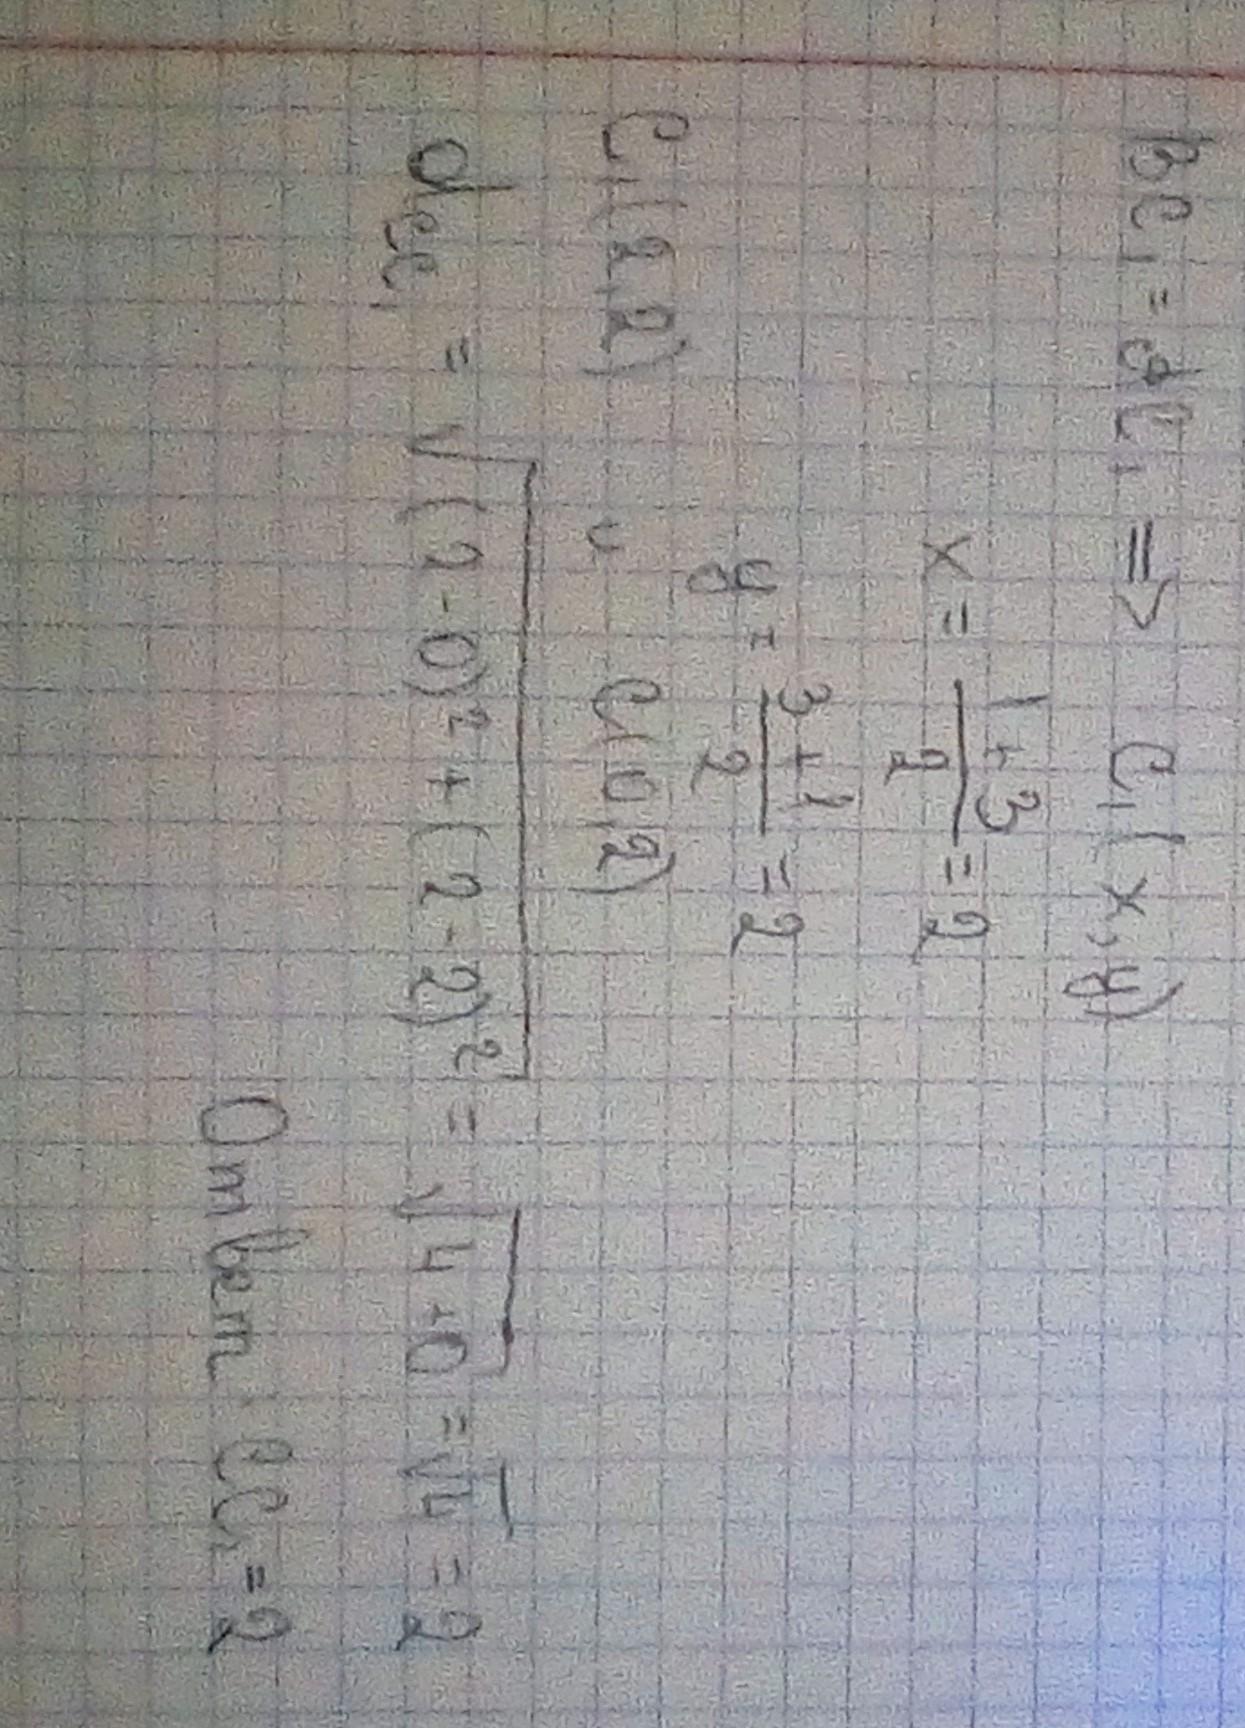 BC₁ = AC₁ => C₁(x, y)
x = \frac{1+3}{2} = 2
y = \frac{3+1}{2} = 2
C₁(2,2) и C(0,2)
d_{CC₁} = \sqrt{(2-0)^2+(2-2)^2} = \sqrt{4+0} = \sqrt{4} = 2
Ответ. CC₁ = 2